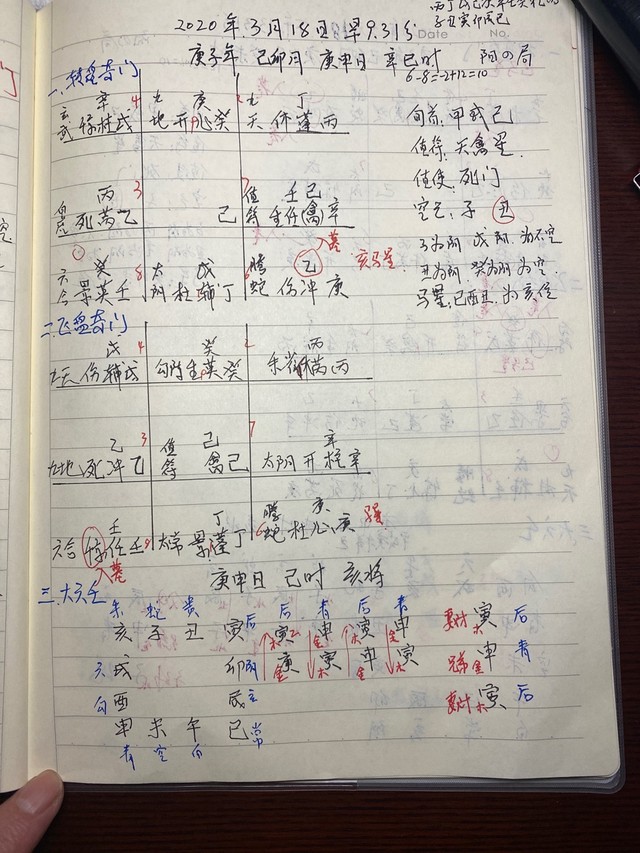 2020年.3月18日早9.31分
Date No.
庚子年 己卯月 庚申日 辛巳时 阳の局
6-8=-2+12=10
一、转盘奇门
辛 4 九 庚 九 丁
玄武 柱戊 地开 癸 天休蓬丙
旬首:甲戌己
值符:天禽星
值使:死门
空亡:子 丑
丙 3 7 值 壬己
白虎 死芮乙 己 符生任(禽)辛
入墓
癸 8 太 戊 6 腾 乙
六合 景英壬 阴杜辅丁 蛇伤冲庚
亥马星
为阴 戊阳 为不空
丑为阴 癸为阴为空
马星:巳酉丑 为亥位
二、飞盘奇门
戊 4 癸 丙
九天伤辅戊 生英癸 芮丙
乙 3 值 己 7 辛
九地死冲乙 符 禽己 太阴开柱辛
壬 丁 腾 庚
六合 任壬 8 太常景蓬丁 6 蛇杜心庚
马星
入墓
庚申日 巳时 亥将
三.大六壬
朱 蛇 贵
亥 子 丑 寅后
后 青 后 青
寅 申 寅 申
庚 寅 申 寅
妻财 寅木 后
兄弟 申金 青
妻财 寅木 后
戌 卯阴
勾酉 辰玄
申 未 午 巳常
青 空 白